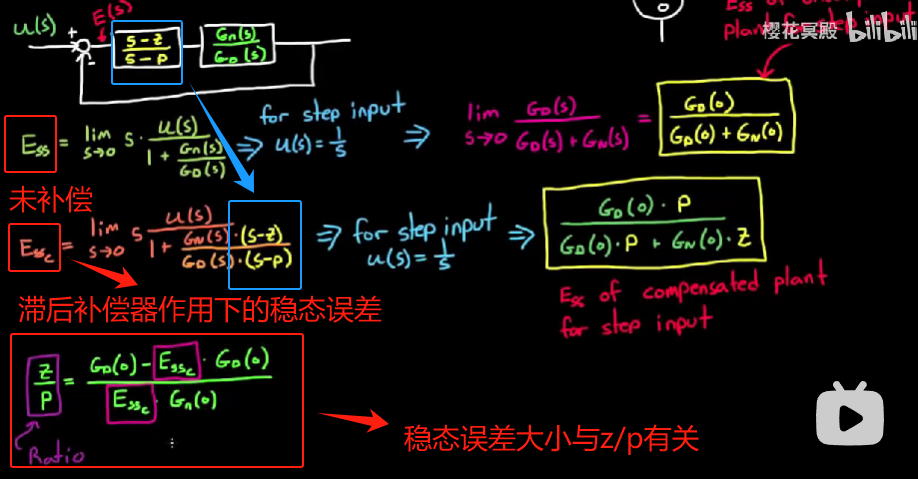 Ess of
plant for step input
樱花冥殿 bilibili
U(s) + E(s) - (s-z)/(s-p) Gn(s)/GD(s)
Ess = lim s→0 s · U(s)/(1 + Gn(s)/GD(s)) ⇒ for step input U(s) = 1/s ⇒ lim s→0 GD(s)/(GD(s) + GN(s)) = GD(0)/(GD(0) + GN(0))
未补偿
Essc = lim s→0 s U(s)/(1 + GN(s)·(s-z)/GD(s)·(s-p)) ⇒ for step input U(s) = 1/s ⇒ GD(0)·P/(GD(0)·P + GN(0)·Z)
滞后补偿器作用下的稳态误差
Ess of compensated plant
for step input
Z/P = (GD(0) - Essc · GD(0))/(Essc · Gn(0))
Ratio
稳态误差大小与z/p有关